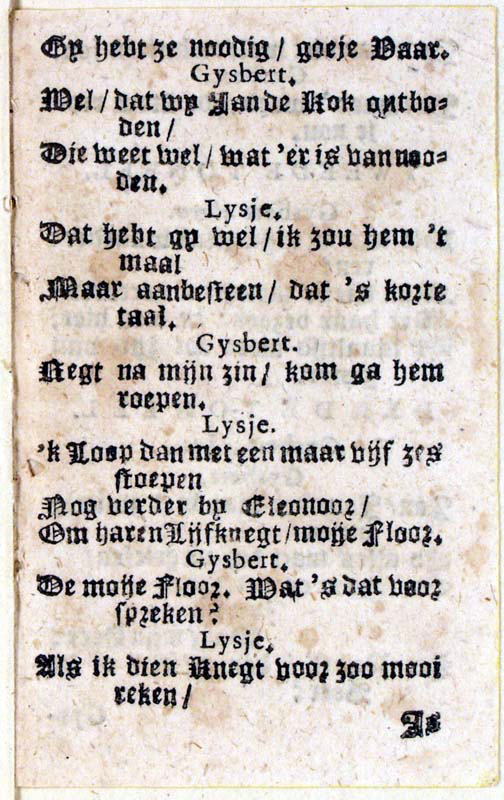 Gy hebt ze noodig / goeje Vaar.
Gysbert.
Wel / dat wy Jan de Kok ontbo-
den /
Die weet wel / wat 'er is van noo-
den.
Lysje.
Dat hebt gy wel / ik zou hem 't
maal
Maar aanbesteen / dat 's korte
taal.
Gysbert.
Regt na mijn zin / kom ga hem
roepen.
Lysje.
'k Loop dan met een maar vijf zes
stoepen
Nog verder by Eleonoor /
Om haren Lijfknegt / moije Floor.
Gysbert.
De moije Floor. Wat 's dat voor
spreken?
Lysje.
Als ik dien Knegt voor zoo mooi
reken /
Is